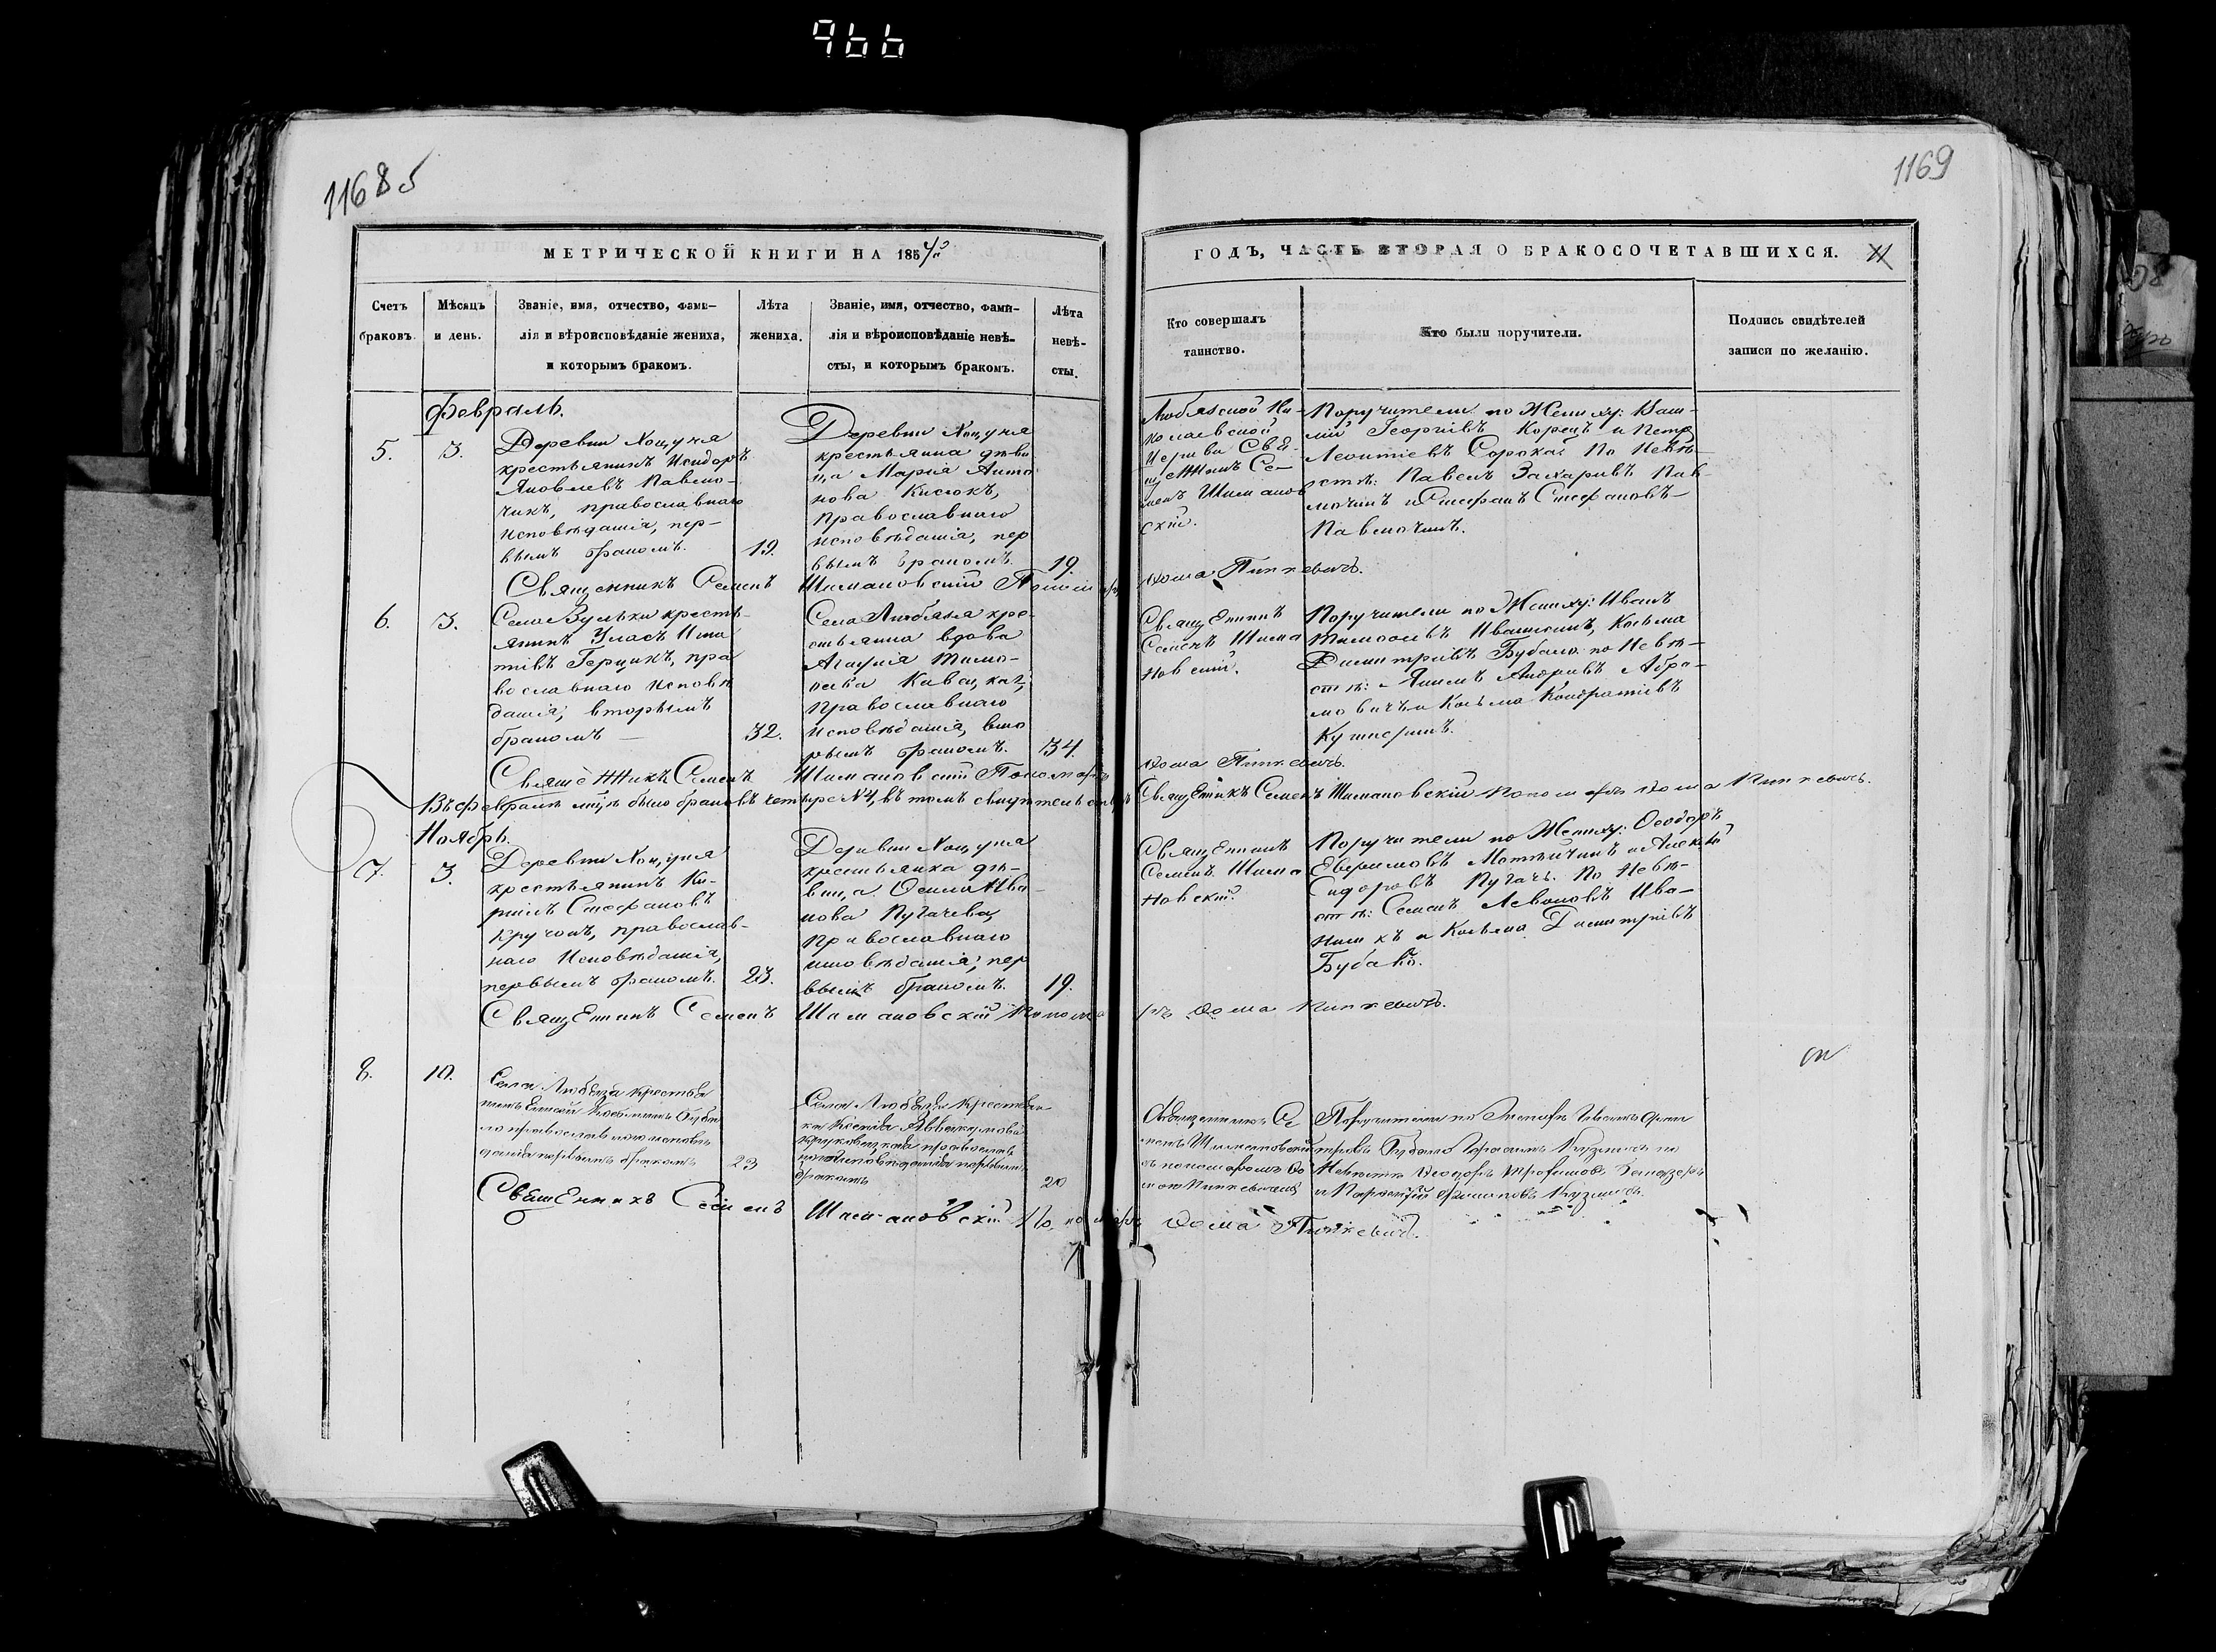 966
11685
1169
МЕТРИЧЕСКОЙ КНИГИ НА 1854й
ГОДЪ, ЧАСТЬ ВТОРАЯ О БРАКОСОЧЕТАВШИХСЯ.
11
Счетъ
браковъ.
Мѣсяцъ
и день.
Званіе, имя, отчество, фами-
лія и вѣроисповѣданіе жениха,
и которымъ бракомъ.
Лѣта
жениха.
Званіе, имя, отчество, фами-
лія и вѣроисповѣданіе невѣ-
сты, и которымъ бракомъ.
Лѣта
невѣ-
сты.
Кто совершалъ
таинство.
Кто были поручители.
Подпись свидѣтелей
записи по желанію.
Февраль.
5.
3.
Деревни Хоцуня
крестьянинъ Исидоръ
Яковлевъ Павлю-
чикъ, православнаго
исповѣданія, пер-
вымъ бракомъ.
19.
Деревни Хоцуня
крестьянка дѣви
ца Марія Анто
нова Кисюкъ,
православнаго
исповѣданія, пер
вымъ бракомъ.
19.
Любязской Ни-
колаевской
Церкви Свя-
щенникъ Се-
менъ Шиманов
скій.
Поручители по Жениху: Васи-
лій Георгіевъ Корецъ и Петръ
Леонтіевъ Сорока. По Невѣ-
стѣ: Павелъ Захаріевъ Пав-
лючикъ и Стефанъ Стефановъ
Павлючикъ.
Священникъ Семенъ Шимановскій Пономарь
Фома Пинкевичъ.
6.
3.
Села Зульки кресть-
янинъ Уласъ Игна
тіевъ Герцикъ, пра
вославнаго исповѣ
данія, вторымъ
бракомъ
32.
Села Любязя кре-
стьянка вдова
Агафія Тимо-
православнаго
исповѣданія, вто
рымъ бракомъ.
34.
Священникъ
Семенъ Шима
новскій.
Поручители по Жениху: Иванъ
Козьма
Димитріевъ Бубало по Невѣ-
стѣ: Якимъ Андріевъ Абра-
мовичъ и Козьма Кондратіевъ
Кушнеритъ.
Священникъ Семенъ Шимановскій Пономарь
Фома Пинкевичъ.
Въ февралѣ мцѣ было браковъ четыре №4, въ томъ свидѣтельствуемъ
Священникъ Семенъ Шимановскій Пономарь Фома Пинкевичъ.
Ноябрь.
7.
3.
Деревни Хоцуня
крестьянинъ Ки-
рилъ Стефановъ
Кручокъ, православ-
наго исповѣданія,
первымъ бракомъ.
23.
Деревни Хоцуня
крестьянка дѣ-
вица Ива-
нова Пугачева,
православнаго
исповѣданія, пер
вымъ бракомъ.
19.
Священникъ
Семенъ Шима
новскій.
Поручители по Жениху: Ѳеодоръ
Сидоровъ Пугачъ. По Невѣ-
стѣ: Семенъ Левоновъ Ива-
никъ и Козьма Димитріевъ
Бубало.
Священникъ Семенъ Шимановскій Понома
рь Фома Пинкевичъ.
8.
10.
Села Любяза крестья
нинъ Елисей Козьминъ Буба
ло православнаго исповѣ
данія первымъ бракомъ
23
Села Любязя крестьян-
ка Ксенія Аввакумова
православ
наго исповѣданія первымъ
бракомъ
20
Священникъ Се
менъ Шимановскій
съ пономаремъ Фо
мою Пинкевичемъ
Священникъ Семенъ Шимановскій Пономарь
Фома Пинкевичъ.